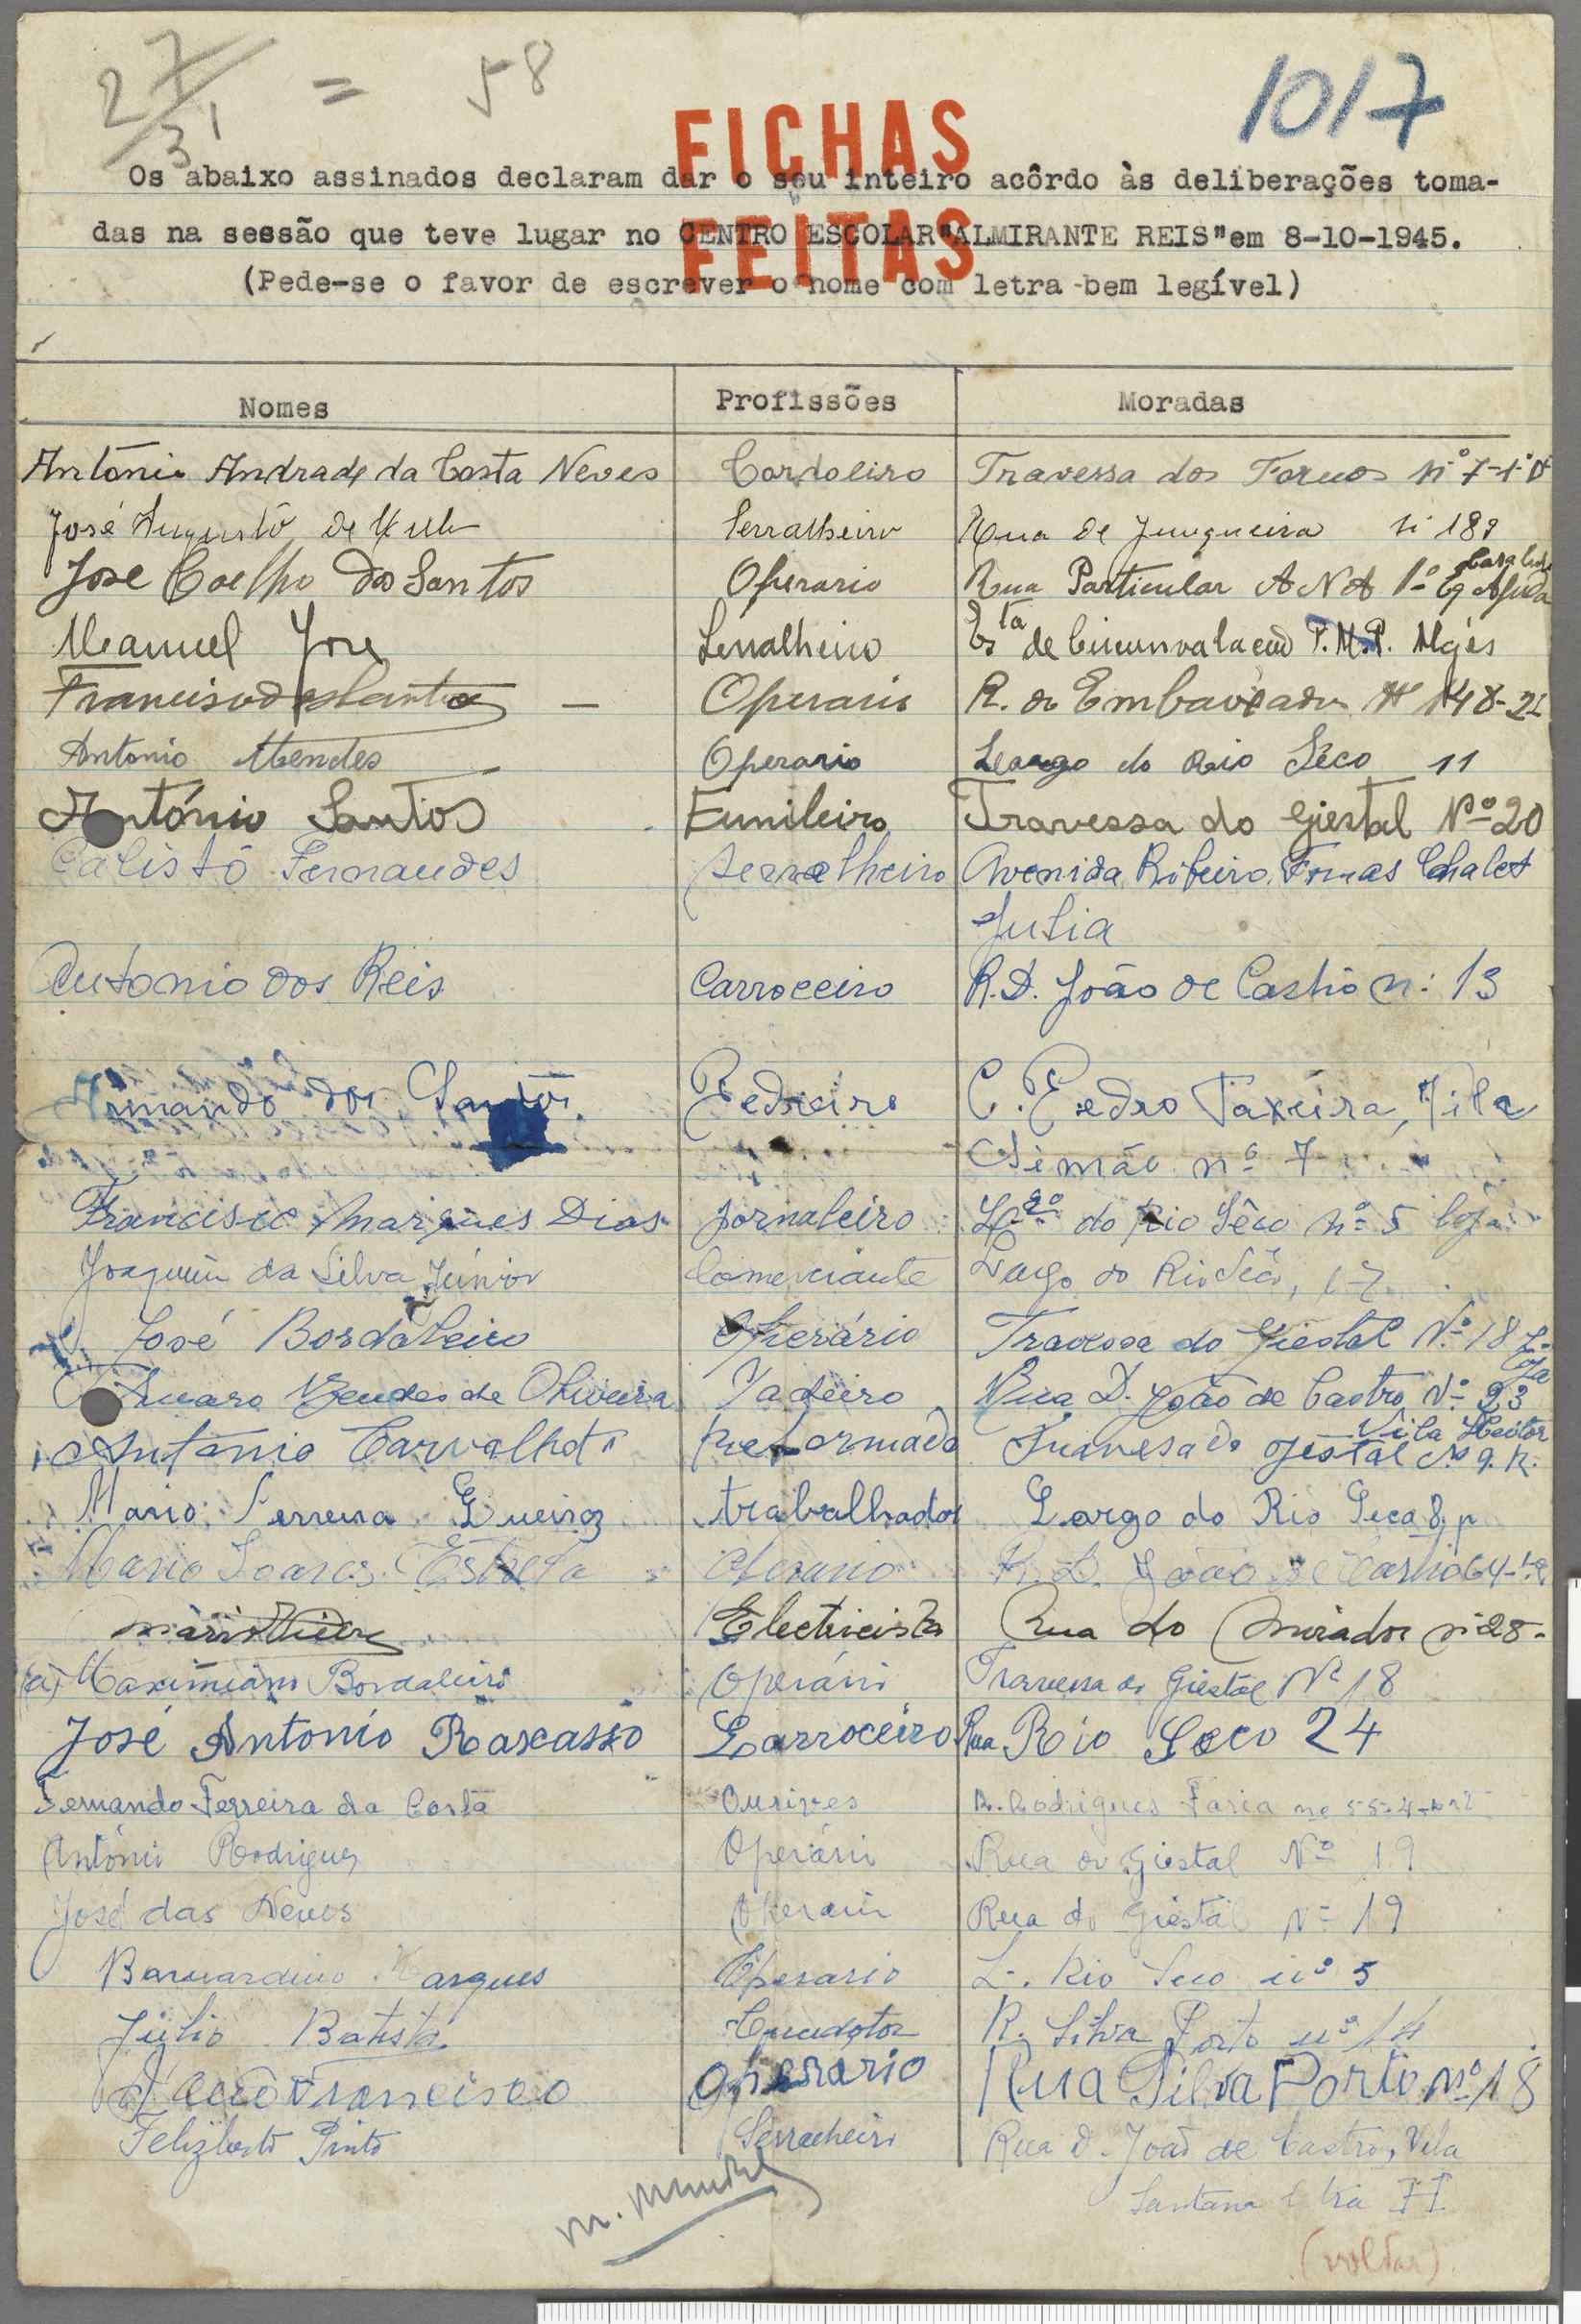 27/31 = 58
1017
FICHAS
FEITAS
Os abaixo assinados declaram dar o seu inteiro acôrdo às deliberações toma-
das na sessão que teve lugar no CENTRO ESCOLAR "ALMIRANTE REIS" em 8-10-1945.
(Pede-se o favor de escrever o nome com letra bem legível)
Nomes Profissões Moradas
António Andrade da Costa Neves Cordoeiro Travessa dos Fornos nº 7-1º Dº
José Augusto de Serralheiro Rua de Junqueira 189
José Coelho dos Santos Operario Rua Particular A N A 1º Ajuda
Manuel José Serralheiro Estª de Circunvalação P.M.P. Algés
Francisco dos Santos Operario R. da Embaixador Nº 148-2
Antonio Mendes Operario Largo do Rio Sêco 11
António Santos Funileiro Travessa do Giestal Nº 20
Calistó Fernandes serralheiro Avenida Ribeiro Chalet
Julia
Antonio dos Reis Carroceiro R. D. João de Castro n: 13
Armando dos Santos Pedreiro C. Pedro Taxeira, Vila
Simão nº 7
Francisco Marques Dias Jornaleiro do Rio Sêco nº 5 loja
Joaquim da Silva Júnior Comerciante Largo do Rio Sêco, 17
José Bordaleiro Operário Travessa do Giestal Nº 18
Loja
Alvaro Mendes de Oliveira Padeiro Rua D. João de Castro Nº 23
Vila Heitor
António Carvalho reformado Travesa do Gestal Nº 9
Mario Ferreira Queiroz trabalhador Largo do Rio Seca 8, p
Mario Soares Estrela Operario R. D. João de Castro 64-1º
Mário Electricista Rua do Mirador nº 28-
(a) Maximiano Bordaleiro Operário Travessa do Giestal Nº 18
José Antonio Rascasso Carroceiro Rua Rio Seco 24
Fernando Ferreira da Costa Ourives R. Rodrigues Faria
António Rodrigues Operário Rua do Giestal Nº 19
José das Neves Operario Rua do Giestal Nº 19
Barnardino Marques Operario L. Rio Seco nº 5
Júlio Batista Condotor R. Silva Porto nº 14
Francisco Operario Rua Silva Porto nº 18
Felizberto Pinto Serralheiro Rua D. João de Castro, Vila
Santana
(voltar)